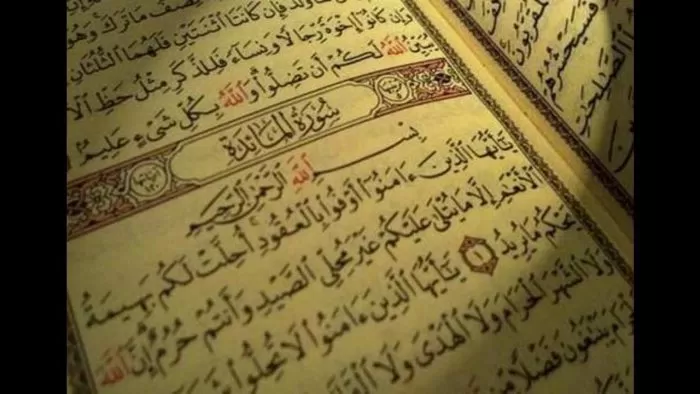 صف ما ترك وهو
ولد فإن كانتا اثنتين فلهما الثلثان
وَإِن كَانُوٓا۟ إِخْوَةً رِّجَالًا وَنِسَآءً فَلِلذَّكَرِ مِثْلُ حَظِّ ٱلْأ
يُبَيِّنُ ٱللَّهُ لَكُمْ أَن تَضِلُّوا۟ وَٱللَّهُ بِكُلِّ شَىْءٍ عَلِيمٌ
سُورَةُ المَائدَة
بِسْمِ ٱللَّهِ ٱلرَّحْمَٰنِ ٱلرَّحِيمِ
يَٰٓأَيُّهَا ٱلَّذِينَ ءَامَنُوٓا۟ أَوْفُوا۟ بِٱلْعُقُودِ أُحِلَّتْ لَكُم بَهِيمَةُ
ٱلْأَنْعَٰمِ إِلَّا مَا يُتْلَىٰ عَلَيْكُمْ غَيْرَ مُحِلِّى ٱلصَّيْدِ وَأَنتُمْ حُرُمٌ إِنَّ ٱللَّهَ
يَحْكُمُ مَا يُرِيدُ ١ يَٰٓأَيُّهَا ٱلَّذِينَ ءَامَنُوا۟ لَا تُحِلُّوا۟
وَلَا ٱلشَّهْرَ ٱلْحَرَامَ وَلَا ٱلْهَدْىَ وَلَا
يَبْتَغُونَ فَضْلًا مِّن
المقربون
فسيحشرهم
الصلحت